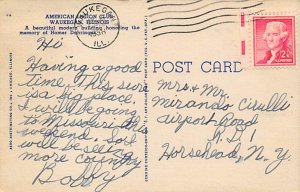 AMERICAN LEGION CLUB
WAUKEGAN, ILLINOIS
A beautiful modern building honoring the
memory of Homer Dahringer.
WAUKEGAN
ILL.
Hi
Having a good
time. This sure
is a big place.
I will be going
to Missouri this
weekend. So I
will be seeing
more country
Bobby
POST CARD
2¢
Mrs & Mr.
Mirando Cirulli
airport Road
R.D. 1
Horsehead, N.Y.